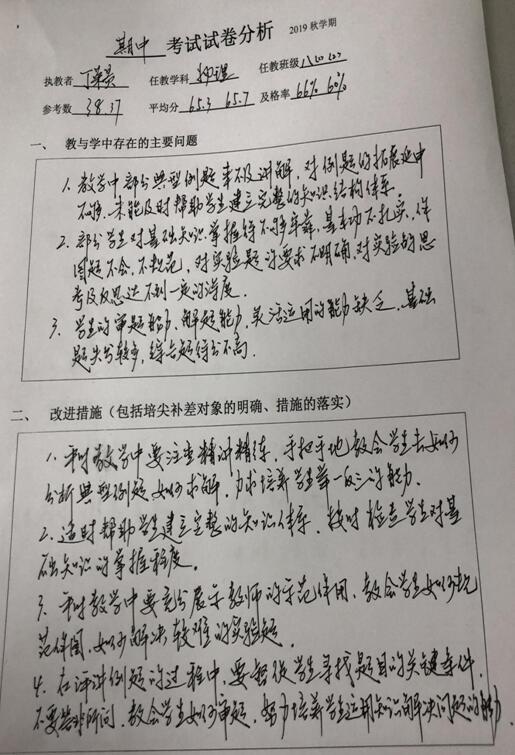 期中 考试试卷分析 2019 秋学期
执教者 丁 任教学科 物理 任教班级 八(1) (2)
参考数 38. 37 平均分 65.3 65.7 及格率 66% 60%
一、 教与学中存在的主要问题
1. 教学中部分典型例题来不及讲解,对例题的拓展延申
不够,未能及时帮助学生建立完整的知识结构体系。
2. 部分学生对基础知识掌握得不够牢靠,基本功不扎实,作
图题不会,不规范,对实验题的要求不明确,对实验的思
考及反思达不到一定的深度.
3. 学生的审题能力、解题能力,灵活运用的能力缺乏,基础
题失分较多,综合题得分不高.
二、 改进措施(包括培尖补差对象的明确、措施的落实)
1. 平时教学中要注重精讲精练,手把手地教会学生去如何
分析典型例题,如何求解,力求培养学生举一反三的能力.
2. 适时帮助学生建立完整的知识体系,按时检查学生对基
础知识的掌握程度。
3. 平时教学中要充分展示教师的示范作用,教会学生如何规
范作图,如何解决较难的实验题.
4. 在评讲例题的过程中,要督促学生寻找题目的关键条件,
不要答非所问,教会学生如何审题,努力培养学生运用知识解决问题的能力